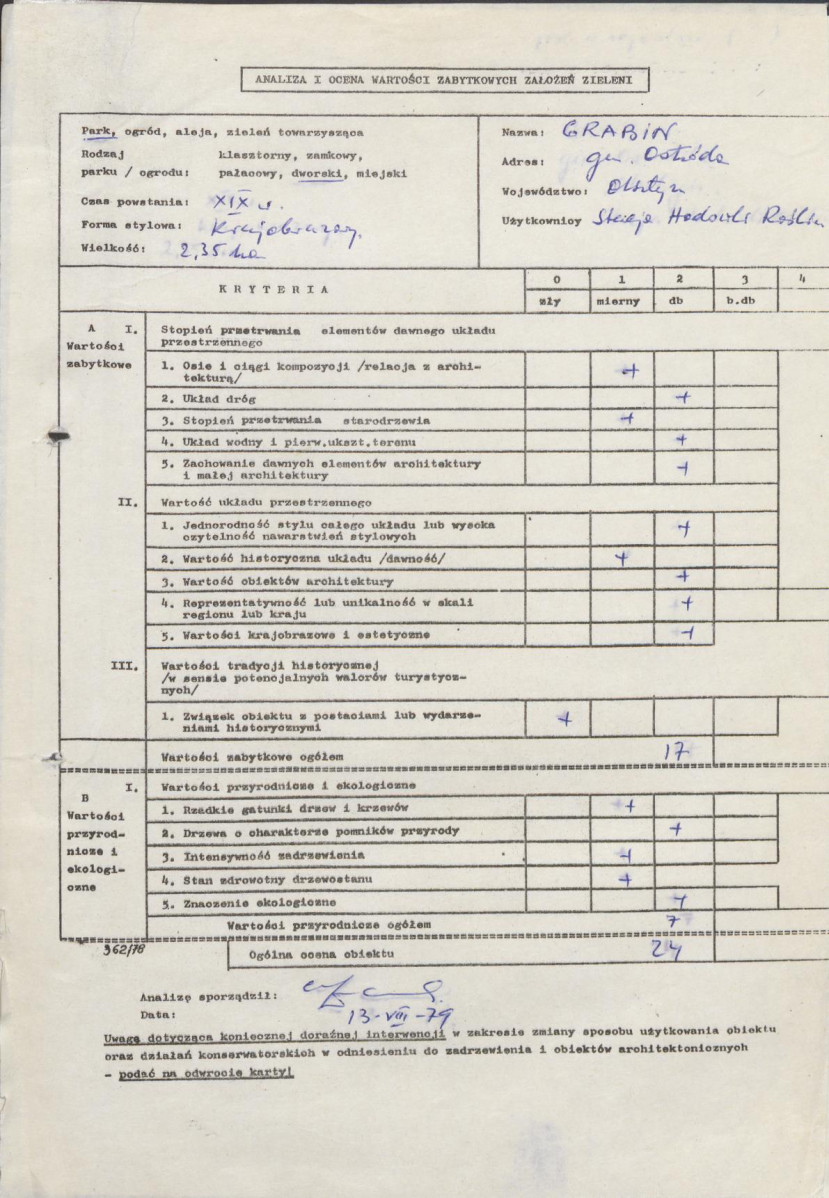 ANALIZA I OCENA WARTOŚCI ZABYTKOWYCH ZAŁOŻEŃ ZIELENI
Park, ogród, aleja, zieleń towarzysząca
Rodzaj klasztorny, zamkowy,
parku / ogrodu: pałacowy, dworski, miejski
Czas powstania: XIX w.
Forma stylowa: Krajobrazowy.
Wielkość: 2,35 ha
Nazwa: GRABIN
Adres: gm. Ostróda
Województwo: Olsztyn
Użytkownicy Stacja Hodowli Roślin
KRYTERIA
0 1 2 3 4
zły mierny db b.db
A I. Stopień przetrwania elementów dawnego układu
Wartości przestrzennego
zabytkowe 1. Osie i ciągi kompozycji /relacja z archi-
tekturą/ +
2. Układ dróg +
3. Stopień przetrwania starodrzewia +
4. Układ wodny i pierw.ukszt.terenu +
5. Zachowanie dawnych elementów architektury
i małej architektury +
II. Wartość układu przestrzennego
1. Jednorodność stylu całego układu lub wysoka
czytelność nawarstwień stylowych +
2. Wartość historyczna układu /dawność/ +
3. Wartość obiektów architektury +
4. Reprezentatywność lub unikalność w skali
regionu lub kraju +
5. Wartości krajobrazowe i estetyczne +
III. Wartości tradycji historycznej
/w sensie potencjalnych walorów turystycz-
nych/
1. Związek obiektu z postaciami lub wydarze-
niami historycznymi +
Wartości zabytkowe ogółem 17
I. Wartości przyrodnicze i ekologiczne
B
Wartości 1. Rzadkie gatunki drzew i krzewów +
przyrod- 2. Drzewa o charakterze pomników przyrody +
nicze i 3. Intensywność zadrzewienia +
ekologi- 4. Stan zdrowotny drzewostanu +
czne 5. Znaczenie ekologiczne +
Wartości przyrodnicze ogółem 7
362/78
Ogólna ocena obiektu 24
Analizę sporządził:
Data: 13-VIII-79
Uwagę dotyczącą koniecznej doraźnej interwencji w zakresie zmiany sposobu użytkowania obiektu
oraz działań konserwatorskich w odniesieniu do zadrzewienia i obiektów architektonicznych
- podać na odwrocie karty!